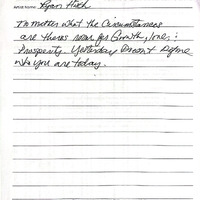 Ryan Hash
No matter what the Circumstances
are theres room for Growth, love, &
Prosperity. Yesterday Doesn't Define
who you are today.